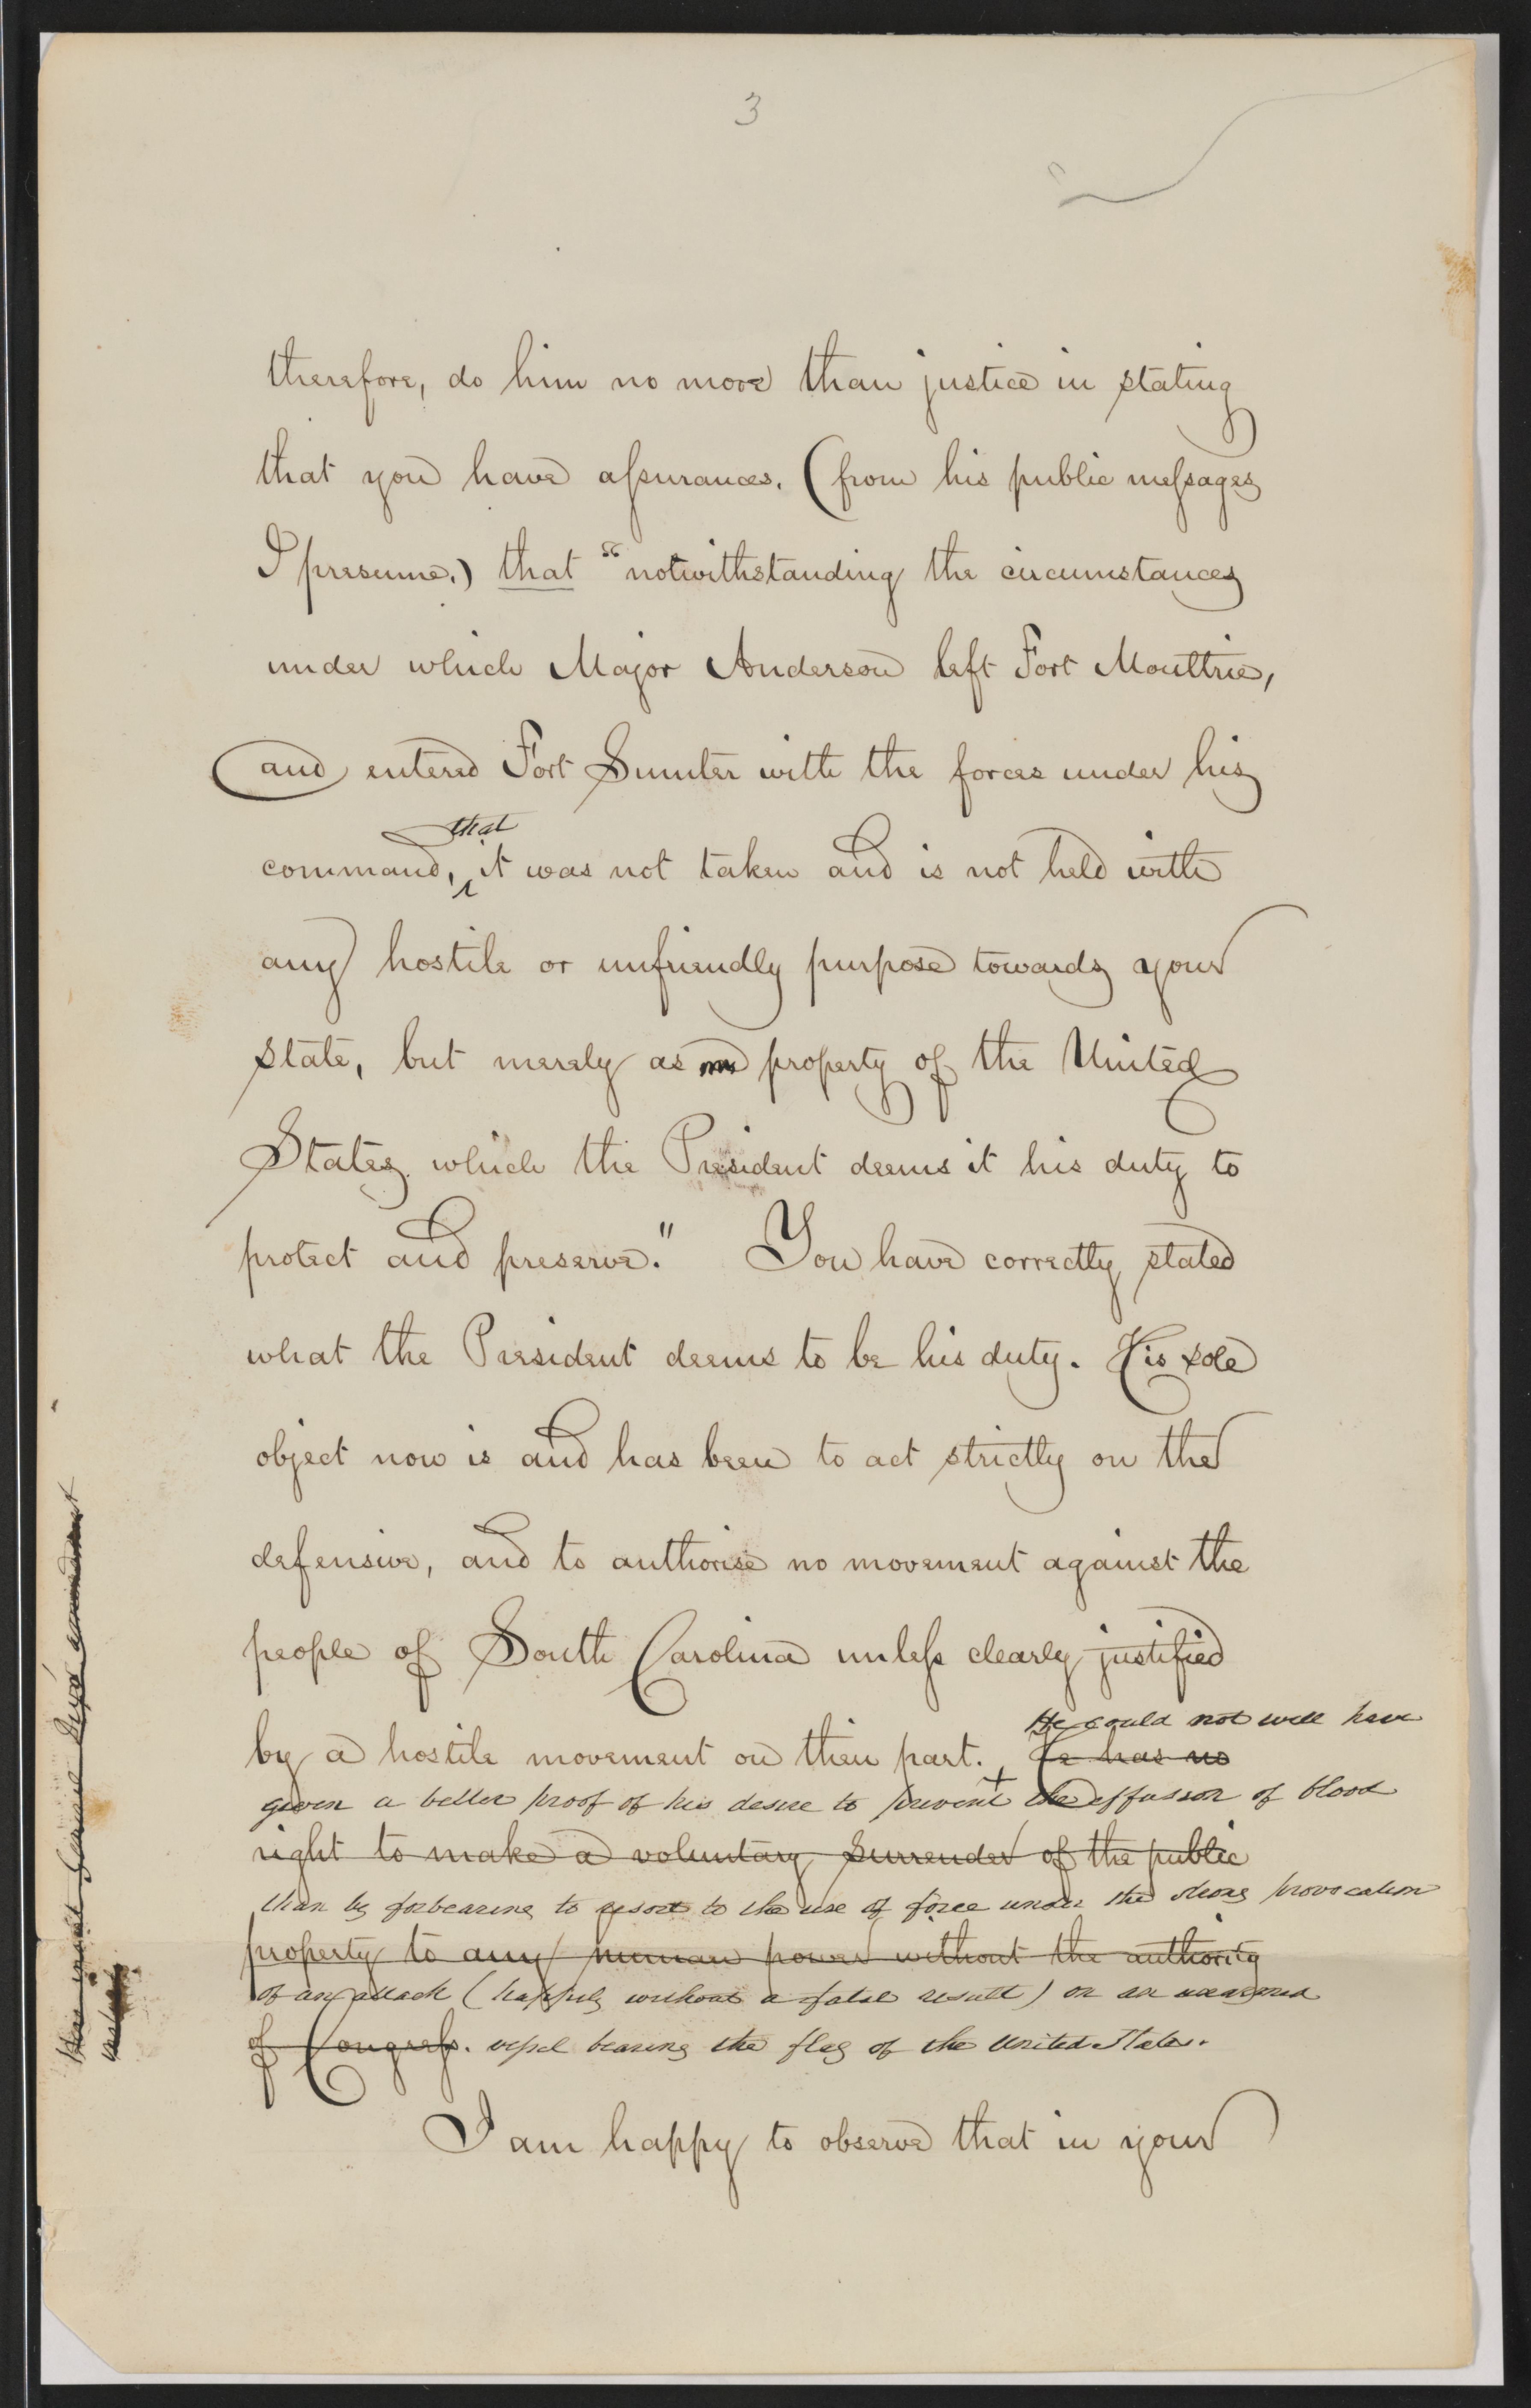 3
therefore, do him no more than justice in stating
that you have assurances, (from his public messages
I presume,) that "notwithstanding the circumstances
under which Major Anderson left Fort Moultrie,
and entered Fort Sumter with the forces under his
that
command, it was not taken and is not held with
any hostile or unfriendly purpose towards your
state, but merely as property of the United
States which the President deems it his duty to
protect and preserve." You have correctly stated
what the President deems to be his duty. His sole
object now is and has been to act strictly on the
defensive, and to authorise no movement against the
people of South Carolina unless clearly justified
He could not well have
by a hostile movement on their part. He has no
given a better proof of his desire to prevent the effusion of blood
right to make a voluntary surrender of the public
than by forbearing to resort to the use of force under the strong provocation
property to any human power without the authority
of an attack (happily without a fatal result) on an unarmed
of Congress. vessel bearing the flag of the United States.
I am happy to observe that in your